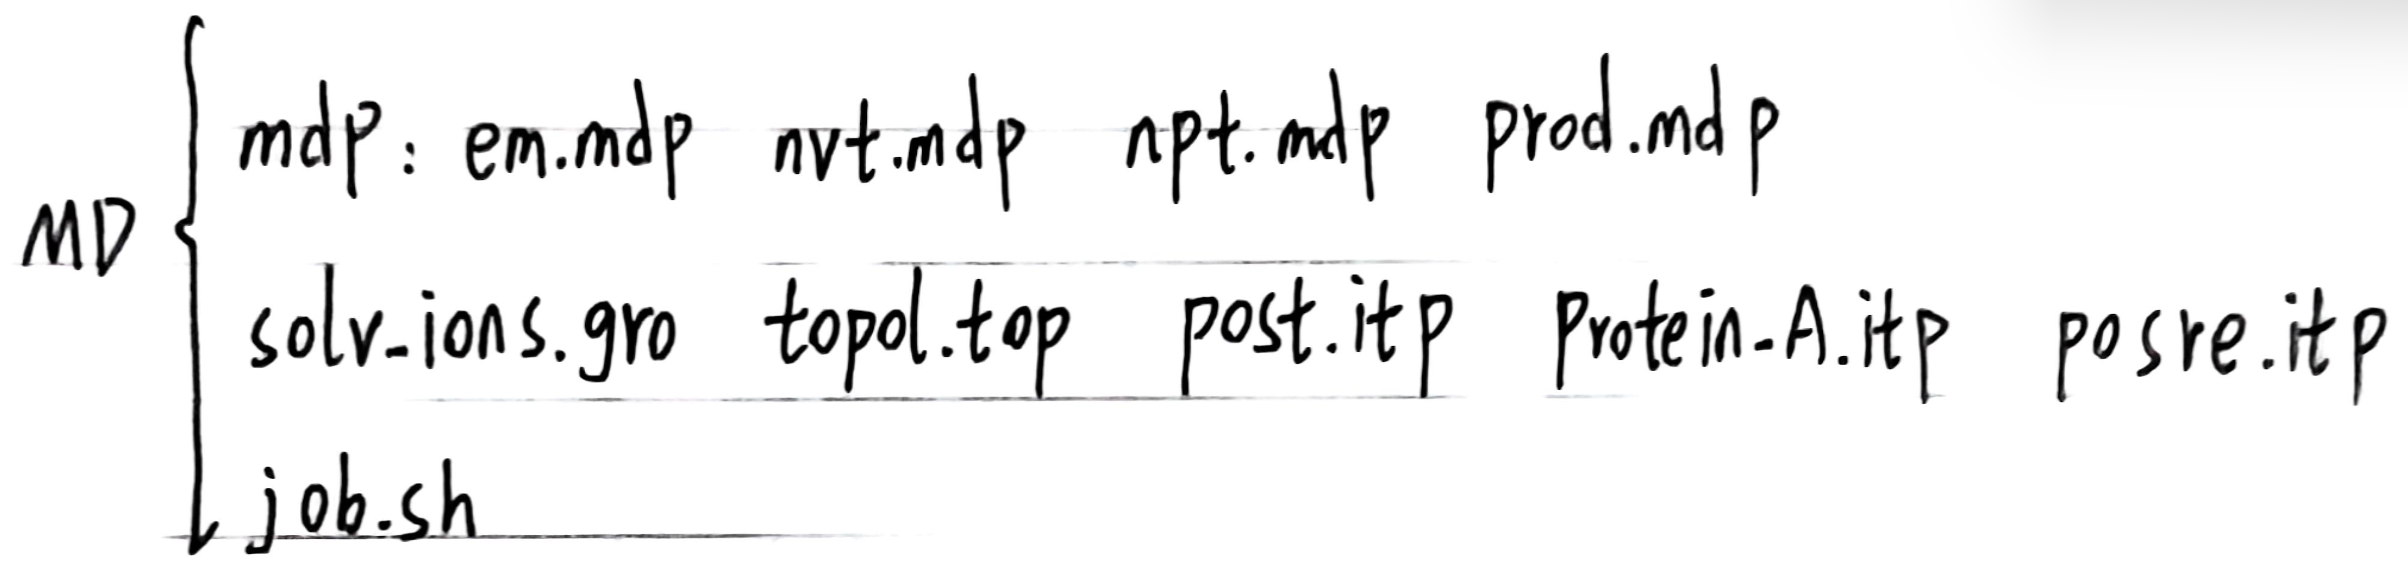 MD
mdp: em.mdp nvt.mdp npt.mdp prod.mdp
solv-ions.gro topol.top post.itp Protein-A.itp posre.itp
job.sh